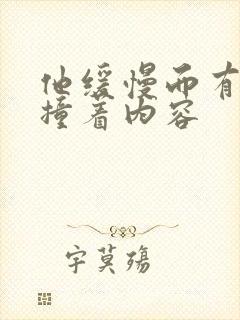 他缓慢而有
撞着内容
字莫殇